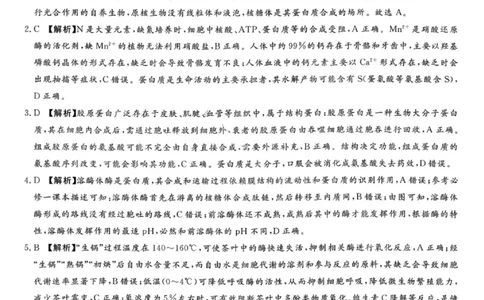 行光合作用的自养生物,原核生物没有线粒体和液泡,核糖体是其蛋白质合成的场所。故选 A。
2. C 【解析】N是大量元素,缺氮培养时,细胞中核酸、ATP、蛋白质等的合成受阻,A正确。Mn²⁺是硝酸还原
酶的活化剂,缺 Mn²⁺的植物无法利用硝酸盐,B正确。人体中约99%的钙存在于骨骼和牙齿中,主要以羟基
磷酸钙晶体的形式存在,缺乏时会导致骨骼发育不良;人体血液中的钙元素主要以 Ca²⁺形式存在,缺乏时会
出现抽搐等症状,C错误。蛋白质是生命活动的主要承担者,其水解产物可能含有S(蛋氨酸等氨基酸含S),
D正确。
3. D 【解析】胶原蛋白广泛存在于皮肤、肌腱、血管等组织中,属于结构蛋白;胶原蛋白是一种生物大分子蛋白
质,其在细胞内合成后,需通过胞吐释放到细胞外,衰老的胶原蛋白由吞噬细胞通过胞吞进行回收,A正确。
组成胶原蛋白的氨基酸可能不完全由自身直接合成,需要外源补充,B正确。结构决定功能,组成蛋白质的
氨基酸序列改变,可能会影响其功能,C正确。蛋白质是大分子,口服会被消化成氨基酸失去药效,D错误。
4. D 【解析】溶酶体酶是蛋白质,其合成和运输过程依赖膜结构的流动性和蛋白质的识别作用,A错误;参考必
修一课本描述可知:溶酶体酶首先在游离的核糖体合成肽链,然后转移至内质网,B错误;由图可知,溶酶体
酶形成的路线没有经过胞吐的路线,C错误;前溶酶体还不成熟,成熟后其中的酶才能发挥作用,根据酶的特
性,溶酶体发挥作用的最适pH,必然和前溶酶体的pH不同,D正确。
5. B 【解析】“生锅”过程温度在140～160℃,可使茶叶中的酶快速失活,抑制相关酶进行氧化反应,A正确;经
“生锅”“熟锅”“初烘”后自由水含量不足,而自由水是细胞代谢的溶剂和参与反应的原料,其缺乏会导致细胞
代谢速率显著下降,B错误;低温(0～4℃)可降低呼吸酶的活性,从而抑制细胞呼吸,降低微生物繁殖能力,